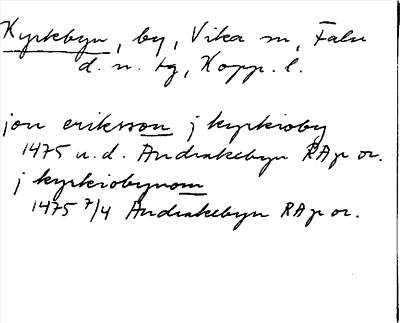 Kyrkebyn, by, Vika sn, Falu
d. n. tg, Kopp. l.
jon eriksson j kyrkioby
1475 u.d. Andrakebyn RAp or.
j kyrkiobynom
1475 7/4 Andrakebyn RAp or.